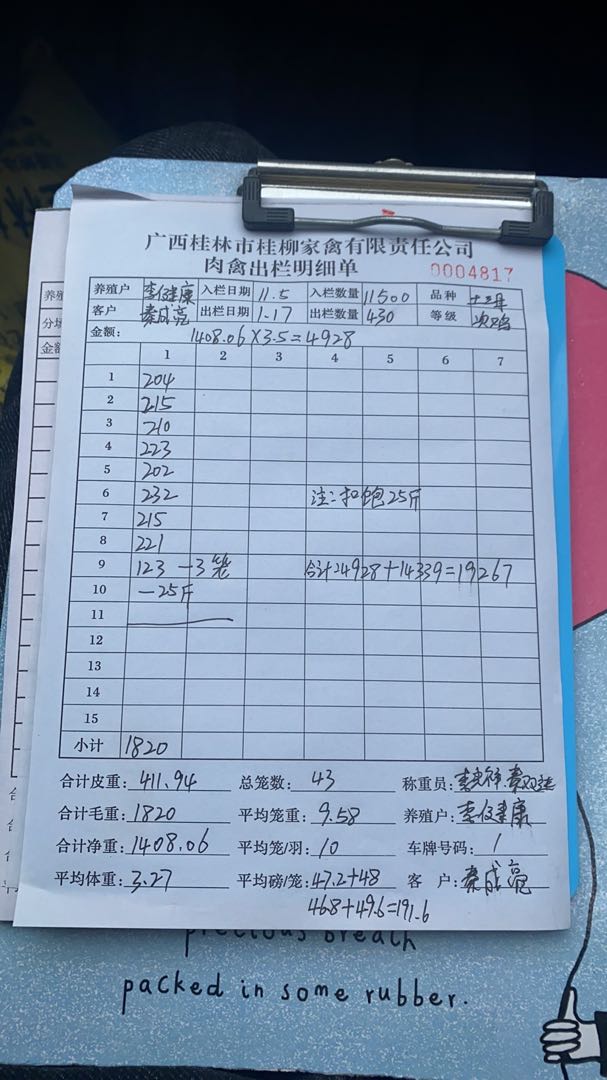 广西桂林市桂柳家禽有限责任公司
肉禽出栏明细单 0004817
养殖户 李俊健康 入栏日期 11.5 入栏数量 11500 品种 土二号
客户 秦成亮 出栏日期 1.17 出栏数量 430 等级 次鸡
金额: 1408.06×3.5=4928
1 2 3 4 5 6 7
1 204
2 215
3 210
4 223
5 202
6 232 注:扣饱25斤
7 215
8 221
9 123 -3笼 合计:4928+14339=19267
10 -25斤
11
12
13
14
15
小计 1820
合计皮重: 411.94 总笼数: 43 称重员:
合计毛重: 1820 平均笼重: 9.58 养殖户:
合计净重: 1408.06 平均笼/羽: 10 车牌号码: 1
平均体重: 3.27 平均磅/笼: 47.2+48 客 户: 秦成亮
46.8+49.6=191.6
养殖
分场
金额
precious breath
packed in some rubber.